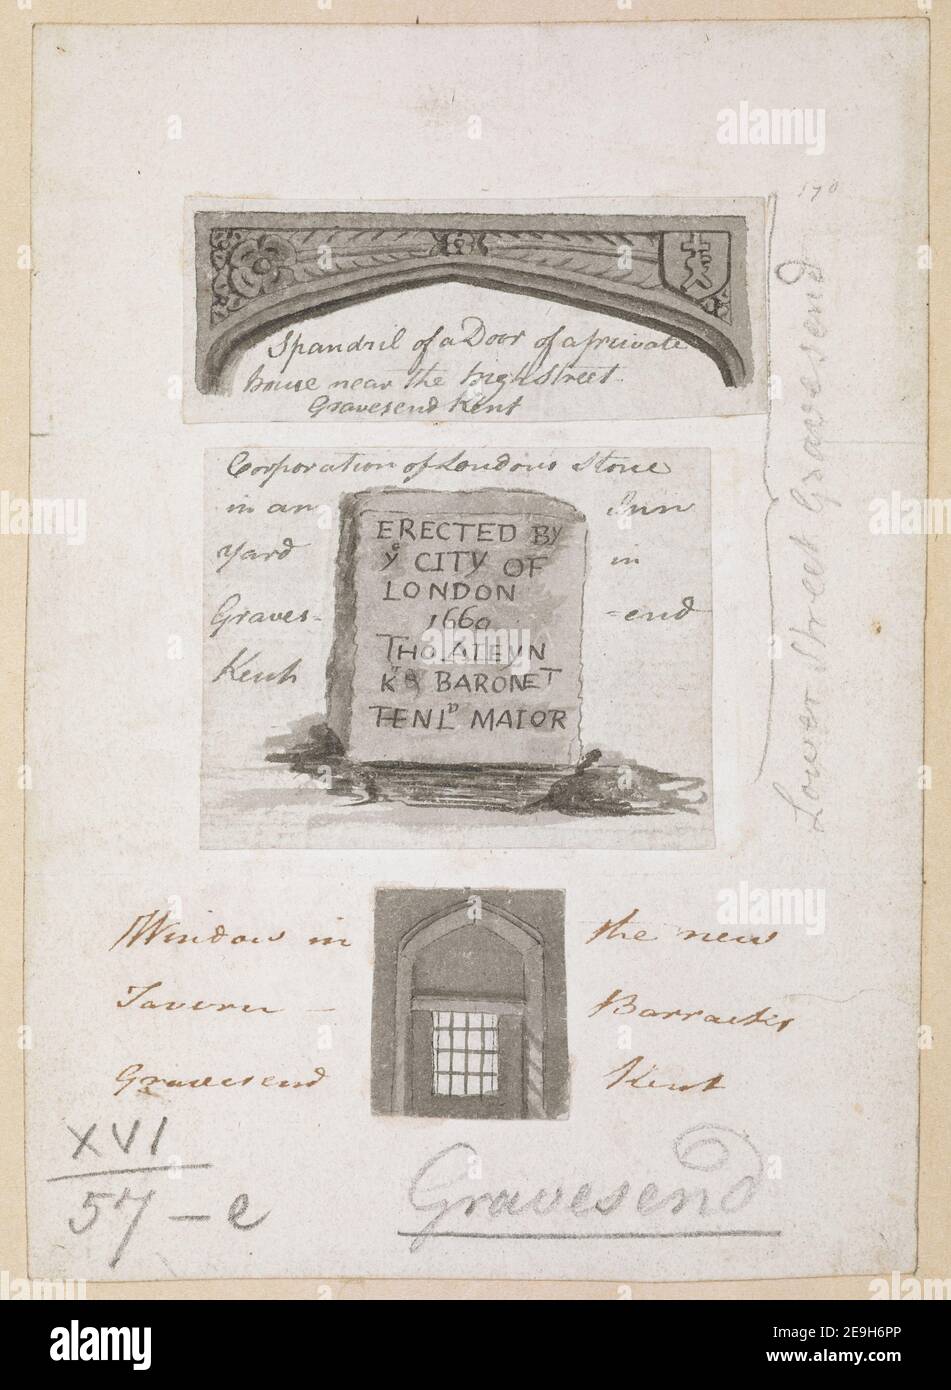 170
Spandril of a Door of a private
house near the high Street
Gravesend Kent
Lower Street Gravesend
Corporation of Londons Stone
in an Inn
Yard in
Graves- -end
Kent
ERECTED BY
Yᵉ CITY OF
LONDON
1660
THO. ALEYN
Kᵗ & BARONET
TENLᴰ MAIOR
Window in the new
Tavern – Barracks
Gravesend Kent
XVI
57-e
Gravesend
alamy
alamy
Image ID: 2E9H6PP
www.alamy.com